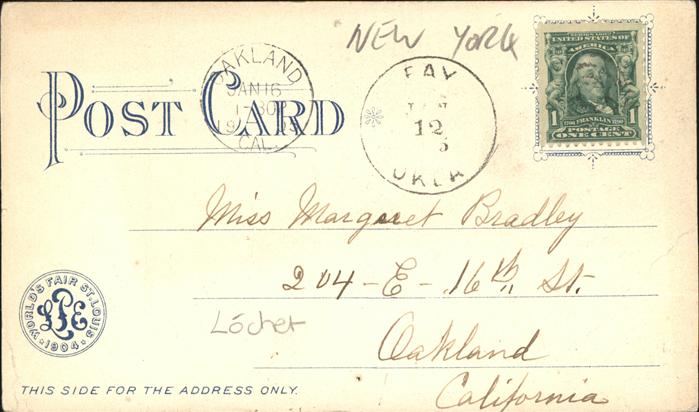 NEW YORK
OAKLAND
JAN 16
1-30
CAL.
FAY
12
OKLA
SERIES 1902
UNITED STATES OF
AMERICA
1 FRANKLIN 1
POSTAGE
ONE CENT
POST CARD
Miss Margaret Bradley
204-E-16th St.
Lóchet
Oakland
California
WORLD'S FAIR ST. LOUIS
LPE
1904
THIS SIDE FOR THE ADDRESS ONLY.